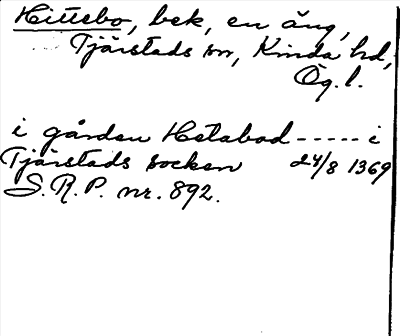 Hittebo, bek, en äng,
Tjärstads sn, Kinda hd,
Ög. l.
i gården Hetabod ----- i
Tjärstads socken 24/8 1369
S.R.P. nr. 892.